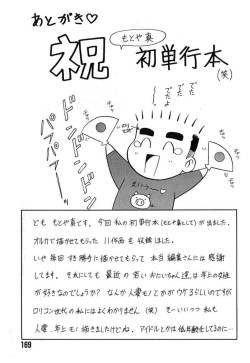 あとがき♡
祝
もとや真
初単行本
(笑)
でたでた
でたよ
ドンドンドン
パパパパー
まいうー
ども もとや真です。今回私の初単行本(もとや真としての)が出ました。
オルカで描かせてもらった11作品を収録しました。
いや毎回好き勝手に描かせてくれて本当編集さんには感謝
してます。それにしても最近の若いおにいちゃん達は年上の女性
が好きなのでしょうか?なんか人妻モノとかがウケるらしいのですが
ロリコン世代の私にはよくわかりません(笑)
人妻、年上モノ描きましたけどね。アイドルとかは低年齢化してるのに…
169